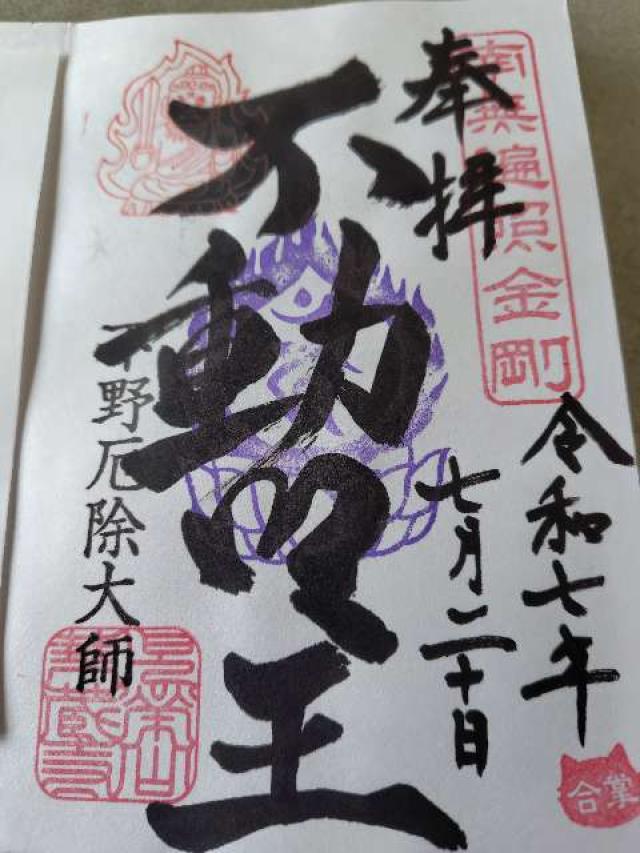 南無遍照金剛
奉拝
令和七年
七月二十日
不動明王
下野厄除大師
合掌